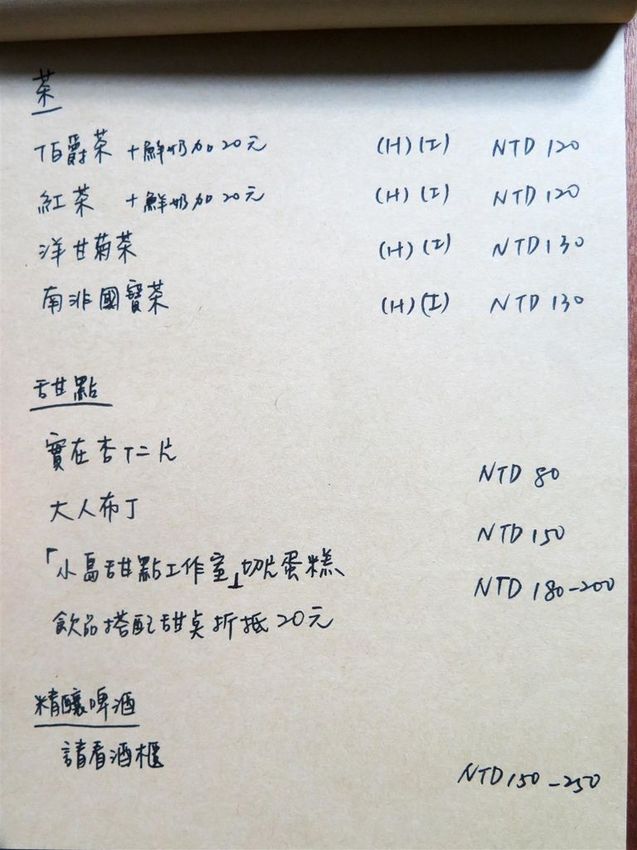 茶
伯爵茶 +鮮奶加20元 (H)(I) NTD 120
紅茶 +鮮奶加20元 (H)(I) NTD 120
洋甘菊茶 (H)(I) NTD 130
南非國寶茶 (H)(I) NTD 130
甜點
實在杏仁片 NTD 80
大人布丁 NTD 150
「小島甜點工作室」切片蛋糕 NTD 180-200
飲品搭配甜点折抵20元
精釀啤酒
請看酒櫃 NTD 150-250